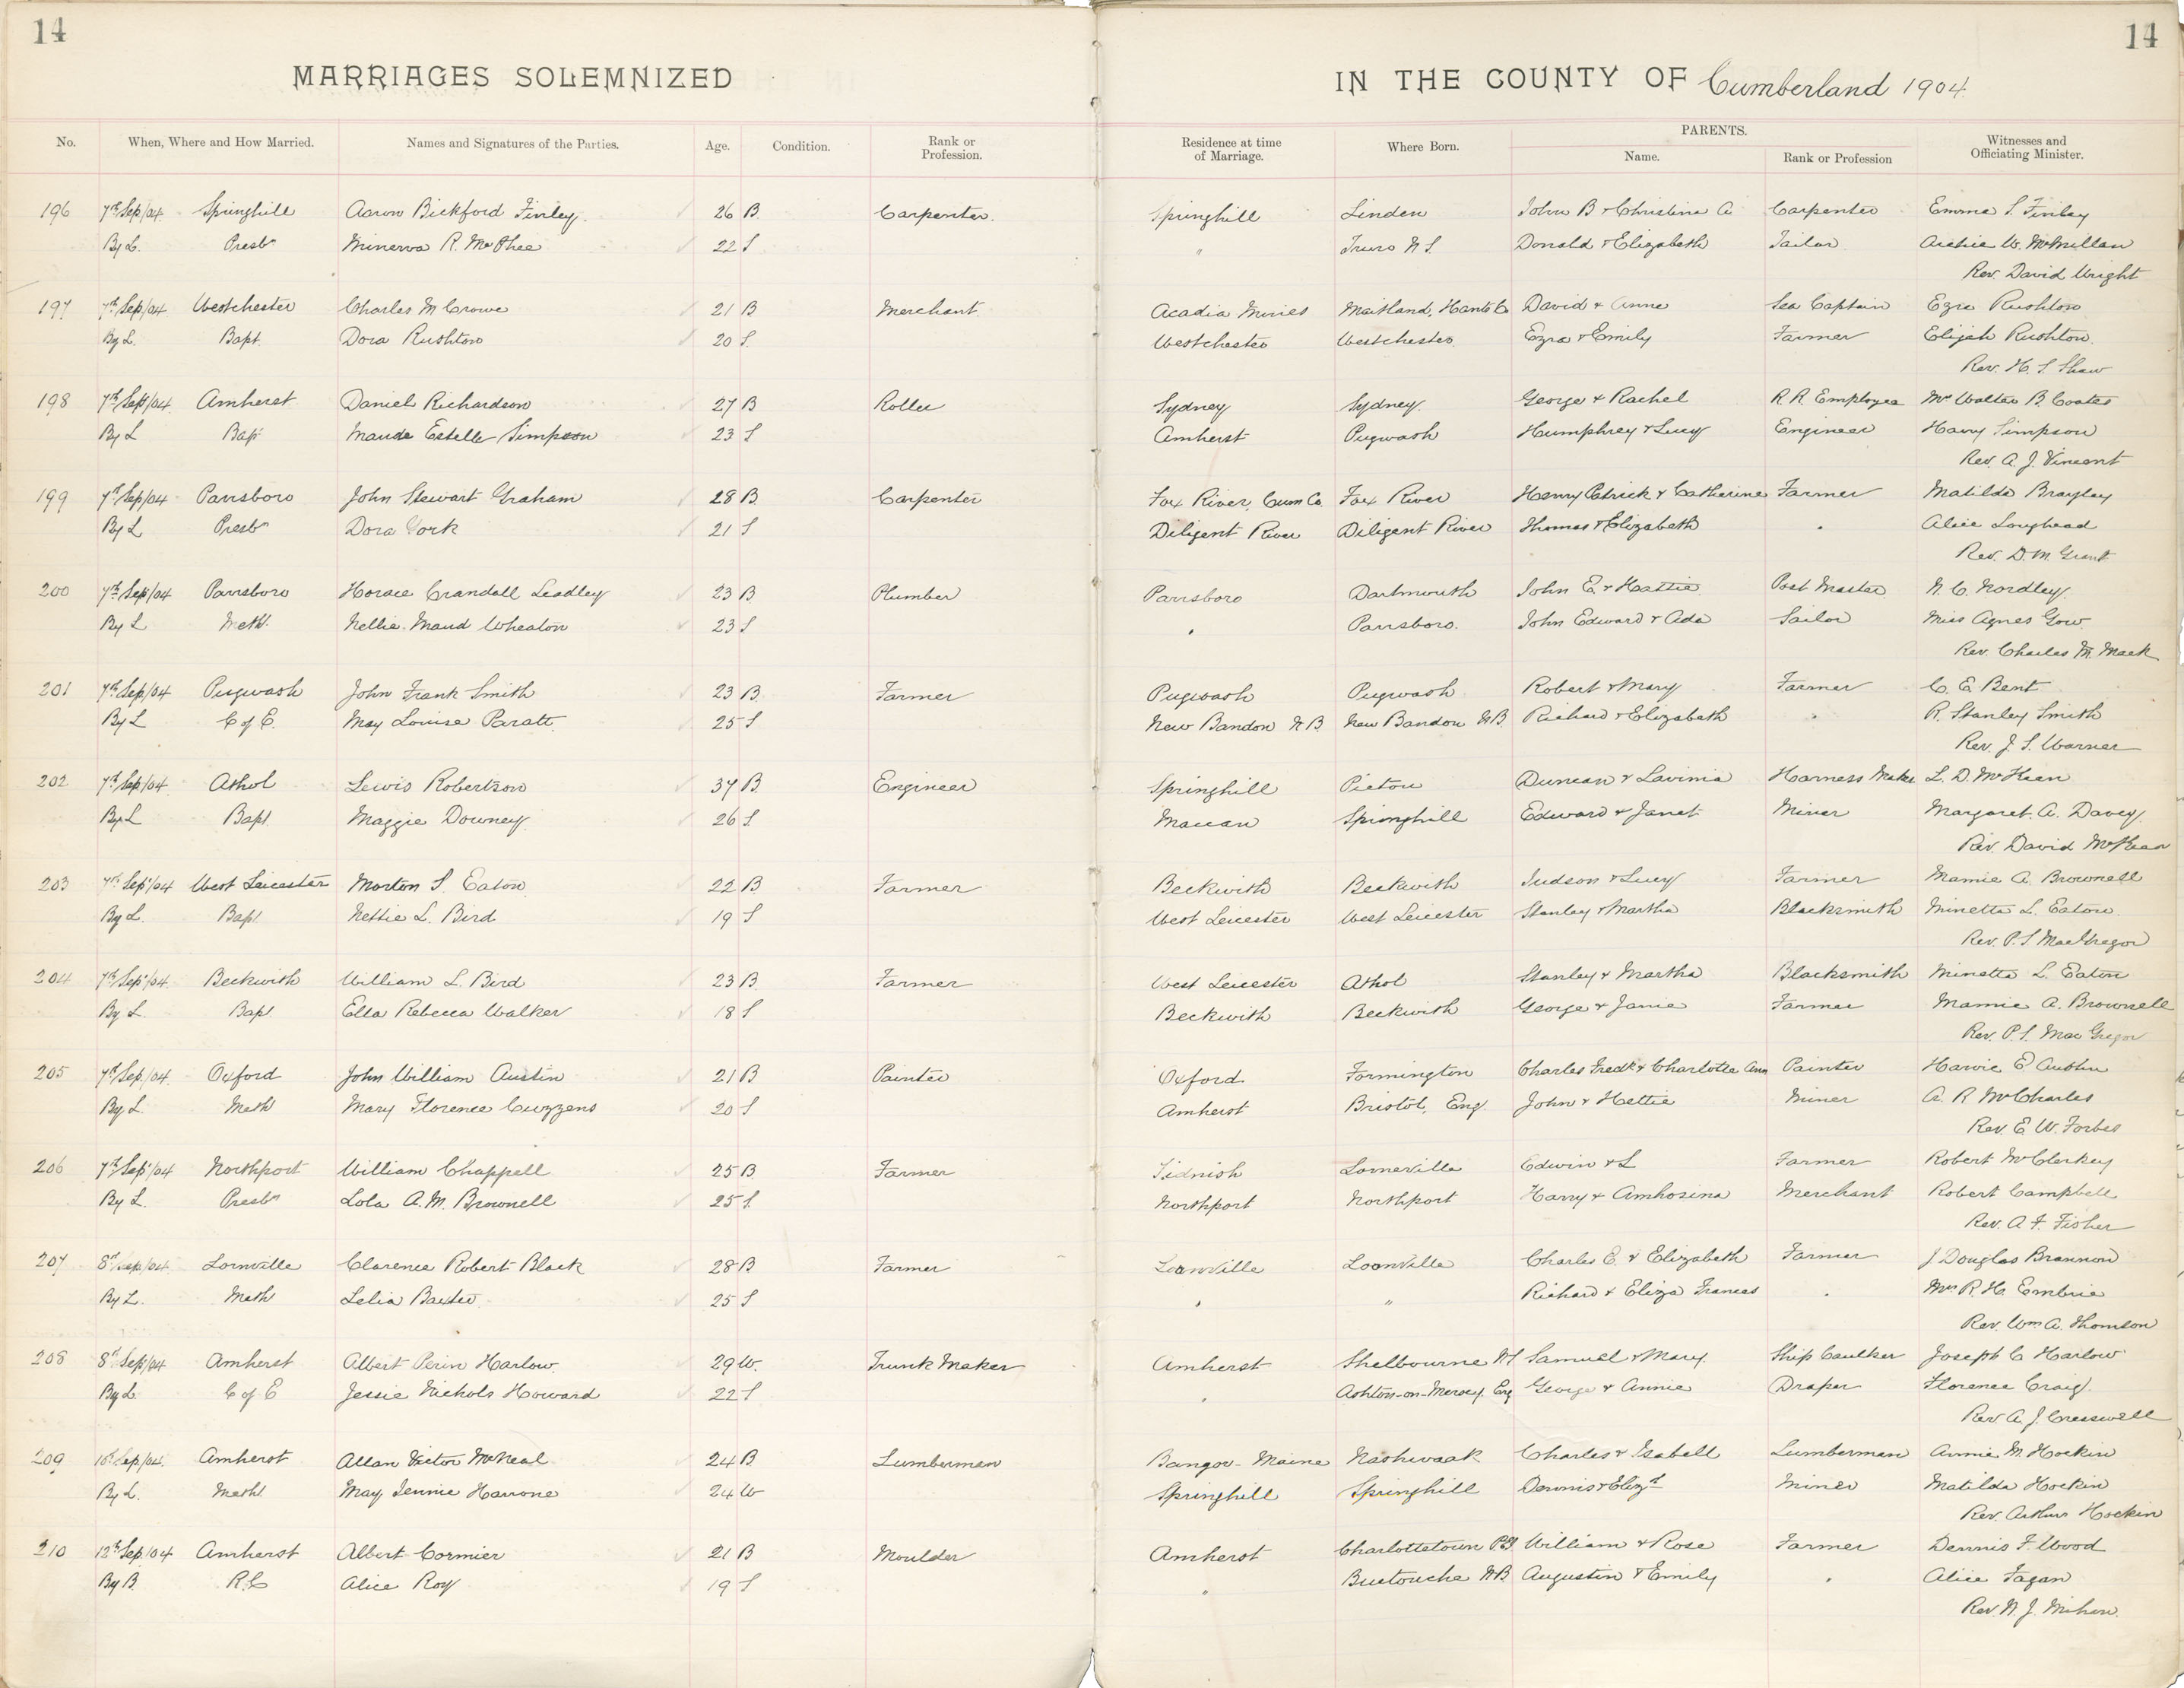 14
14
MARRIAGES SOLEMNIZED IN THE COUNTY OF Cumberland 1904
No. When, Where and How Married. Names and Signatures of the Parties. Age. Condition. Rank or Profession. Residence at time of Marriage. Where Born. PARENTS. Name. Rank or Profession Witnesses and Officiating Minister.
196 7th Sep/04 Springhill Aaron Bickford Finley 26 B. Carpenter. Springhill Linden John B & Christina A Carpenter Emma S. Finlay
By L. Presbn Minerva R. McPhee 22 S " Truro N.S. Donald & Elizabeth Tailor Archie W. McMillan
Rev. David Wright
197 7th Sep/04 Westchester Charles M Crowe 21 B Merchant Acadia Mines Maitland, Hants Co David & Anne Sea Captain Ezra Rushton
By L. Bapt. Dora Rushton 20 S. Westchester Westchester Ezra & Emily Farmer Elijah Rushton
Rev. H. S. Shaw
198 7th Sept/04 Amherst Daniel Richardson 27 B Roller Sydney Sydney George & Rachel R R Employee Mrs Walter B. Coates
By L Bapt Maude Estelle Simpson 23 S Amherst Pugwash Humphrey & Lucy Engineer Harry Simpson
Rev. A. J. Vincent
199 7th Sep/04 Parrsboro John Stewart Graham 28 B Carpenter Fox River, Cum Co. Fox River Henry Patrick & Catherine Farmer Matilda Brayley
By L Presbn Dora York 21 S Diligent River Diligent River Thomas & Elizabeth " Alice Loughead
Rev. D. M. Grant
200 7th Sep/04 Parrsboro Horace Crandall Leadley 23 B Plumber Parrsboro Dartmouth John E. & Hattie Post Master N. C. Nordley.
By L Meth. Nellie Maud Wheaton 23 S " Parrsboro. John Edward & Ada Sailor Miss Agnes Gow
Rev. Charles M. Mack
201 7th Sep/04 Pugwash John Frank Smith 23 B. Farmer Pugwash Pugwash Robert & Mary Farmer C. E. Bent
By L C of E. May Louise Paratt 25 S New Bandon N.B. New Bandon N.B. Richard & Elizabeth " R. Stanley Smith
Rev. J. S. Warner
202 7th Sep/04 Athol Lewis Robertson 37 B. Engineer Springhill Pictou Duncan & Lavinia Harness Maker L. D. McKean
By L Bapt Maggie Downey 26 S Maccan Springhill Edward & Janet Miner Margaret. A. Davey
Rev. David McKean
203 7th Sep/04 West Leicester Morton S. Eaton 22 B Farmer Beckwith Beckwith Judson & Lucy Farmer Mamie A. Brownell
By L. Bapt Nettie L. Bird 19 S West Leicester West Leicester Stanley & Martha Blacksmith Minetta L. Eaton
Rev. P. S. MacGregor
204 7th Sep/04 Beckwith William L. Bird 23 B. Farmer West Leicester Athol Stanley & Martha Blacksmith Minetta L. Eaton
By L. Bapt Ella Rebecca Walker 18 S Beckwith Beckwith George & Janie Farmer Mamie A. Brownell
Rev. P. S. MacGregor
205 7th Sep/04 Oxford John William Austin 21 B Painter Oxford Formington Charles Fredk & Charlotte Ann Painter E Austin
By L. Meth Mary Florence Cuzzens 20 S Amherst Bristol, Eng. John & Hettie Miner A. R McCharles
Rev. E. W. Forbes
206 7th Sep/04 Northport William Chappell 25 B. Farmer Tidnish Lorneville Edwin & L Farmer Robert McClerkey
By L. Presbn Lola A. M. Brownell 25 S. Northport Northport Harry & Amhosina Merchant Robert Campbell
Rev. A. F. Fisher
207 8th Sep/04 Lornville Clarence Robert Black 28 B Farmer Lornville Lornville Charles E. & Elizabeth Farmer J Douglas Brannon
By L. Meth Lelia Baxter 25 S " " Richard & Eliza Frances " Mrs R. H. Embrie
Rev. Wm A. Thomson
208 8th Sep/04 Amherst Albert Perin Harlow 29 W. Trunk Maker Amherst Shelbourne N.S Samuel & Mary Ship Caulker Joseph C Harlow
By L. C of E Jessie Nichols Howard 22 S " Ashton-on-Mersey Eng George & Annie Draper Florence Craig
Rev. A. J. Cresswell
209 10th Sep/04 Amherst Allan Victor McNeal 24 B Lumberman Bangor Maine Nashwaak Charles & Isabell Lumberman Annie M. Hockin
By L. Meth May Jennie Harrone 24 W Springhill Springhill Dennis & Elizth Miner Matilda Hockin
Rev. Arthur Hockin
210 12th Sep/04 Amherst Albert Cormier 21 B Moulder Amherst Charlottetown P.E.I William & Rose Farmer Dennis F. Wood
By B. R.C Alice Roy 19 S " Buctouche N.B Augustin & Emily " Alice Fagan
Rev. N. J. Mihan.